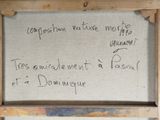 composition nature morte
1990
Tres amicalement à Pascal
et à Dominique